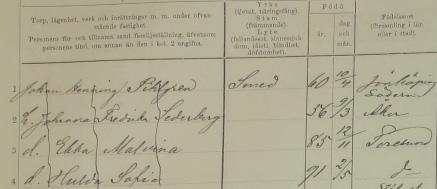 Torp, lägenhet, verk och inrättningar m. m. under ofvanstående fastighet.
Personens för- och tillnamn samt familjeställning, äfvensom personens titel, om annan än den i kol. 2 angifna.
Yrke
(tjenst, näringsfång).
Stam
(främmande).
Lyte
(fallandesot, sinnessjukdom, idioti, blindhet, döfstumhet).
Född
år.
dag och mån.
Födelseort
(församling i län eller i stad).
1 Johan Henning Smed 60 10/4 Jonköping
Södern
2 h. Johanna Fredrika Sederberg 56 9/3 Åker
3 d. Ebba Malvina 85 12/11
4 d. Hulda Sofia 91 2/5 d